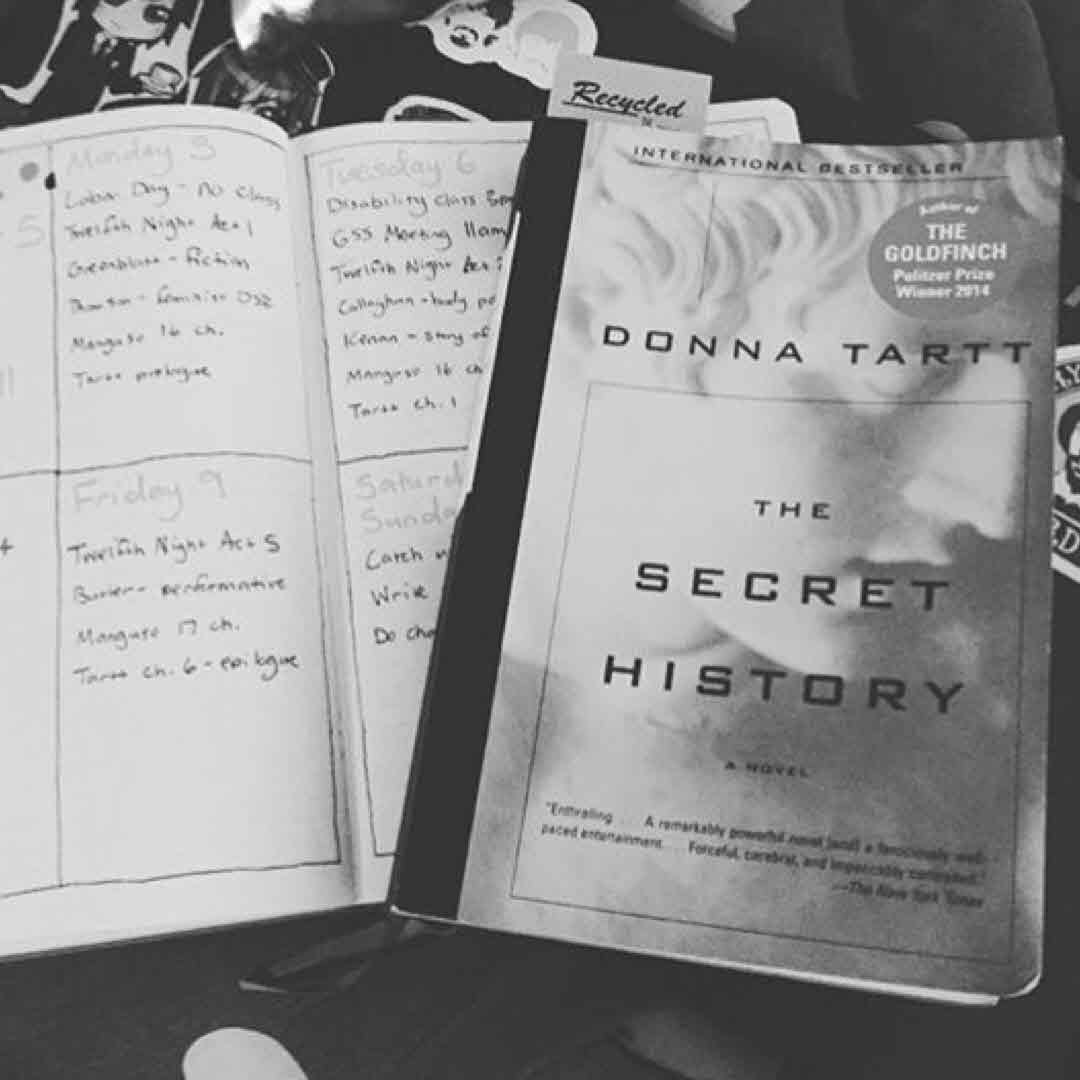 Monday 5
Labor Day - no class
Twelfth Night Act 1
Greenblatt - fiction
feminist DSZ
Manguso 16 ch.
Tartt prologue
Friday 9
Twelfth Night Act 5
performative
Manguso 17 ch.
Tartt ch. 6 - epilogue
5
Tuesday 6
Disability class
GSS Meeting 11am
Twelfth Night Act
Callaghan - body
Kenan - story of
Manguso 16 ch
Tartt ch. 1
Saturd
Sunda
Catch
Write
Do cho
Recycled
INTERNATIONAL BESTSELLER
Author of
THE
GOLDFINCH
Pulitzer Prize
Winner 2014
DONNA TARTT
THE
SECRET
HISTORY
A NOVEL
"Enthralling . . . A remarkably powerful novel [and] a ferociously well-
paced entertainment. . . . Forceful, cerebral, and impeccably controlled."
—The New York Times